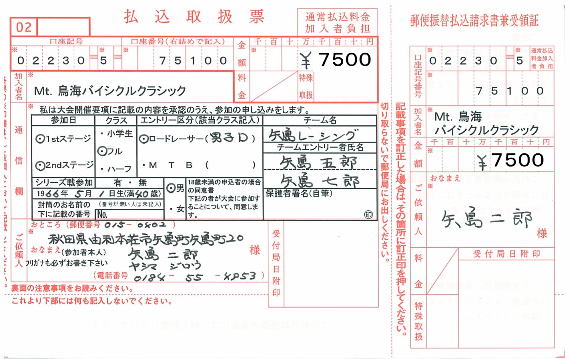 02
払込取扱票
通常払込料金
加入者負担
口座記号
口座番号(右詰めで記入)
金額
千百十万千百十円
02230=5=
75100
¥7500
加入者名
Mt. 鳥海バイシクルクラシック
料金
特殊取扱
※私は大会開催要項に記載の内容を承認のうえ、参加の申し込みをします。
通信欄
参加日
クラス
エントリー区分(該当クラス記入)
チーム名
1stステージ
2ndステージ
・小学生
フル
・ハーフ
ロードレーサー(男子D)
MTB( )
矢島レーシング
チームエントリー者氏名
矢島五郎
矢島七郎
シリーズ戦参加
有・無
1966年5月1日生(満40歳)
男
・女
18歳未満の申込者の場合
の同意書
下記の者が大会に参加す
ることについて、同意しま
す。
保護者署名(自筆)
封筒のお名前の
下に記載の番号
No.
ご依頼人
おところ(郵便番号015-0402)
秋田県由利本荘市矢島町矢島町20
おなまえ
(参加者本人)
フリガナも必ずお書き下さい
矢島二郎
ヤシマ ジロウ
様
(電話番号 0184-55-4953)
受付局日附印
裏面の注意事項をお読みください。
これより下部には何も記入しないでください。
切り取らないで郵便局にお出しください。
記載事項を訂正した場合は、その箇所に訂正印を押してください。
郵便振替払込請求書兼受領証
口座記号番号
02230=5
通常払込
料金加入
者負担
75100
加入者名
Mt. 鳥海
バイシクルクラシック
金額
千百十万千百十円
¥7500
ご依頼人
おなまえ
矢島二郎
様
料金
特殊取扱
受付局日附印